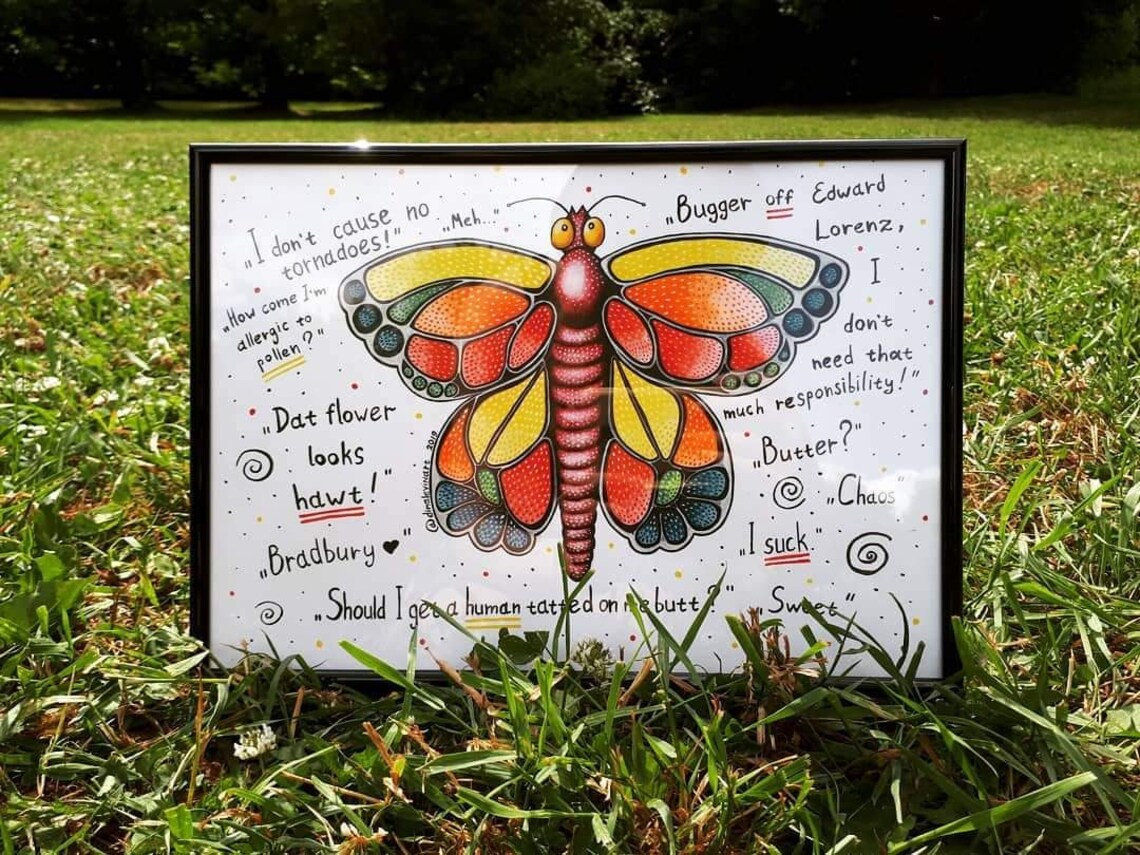 „I don't cause no
tornadoes!"
„Meh..."
„Bugger off Edward
Lorenz,
I
don't
need that
much responsibility!"
„How come I'm
allergic to
pollen?"
„Dat flower
looks
hawt!"
„Butter?"
„Chaos"
„Bradbury ♥"
„I suck."
„Should I get a human tatted on me butt?"
„Sweet"
@dinalevinart 2019